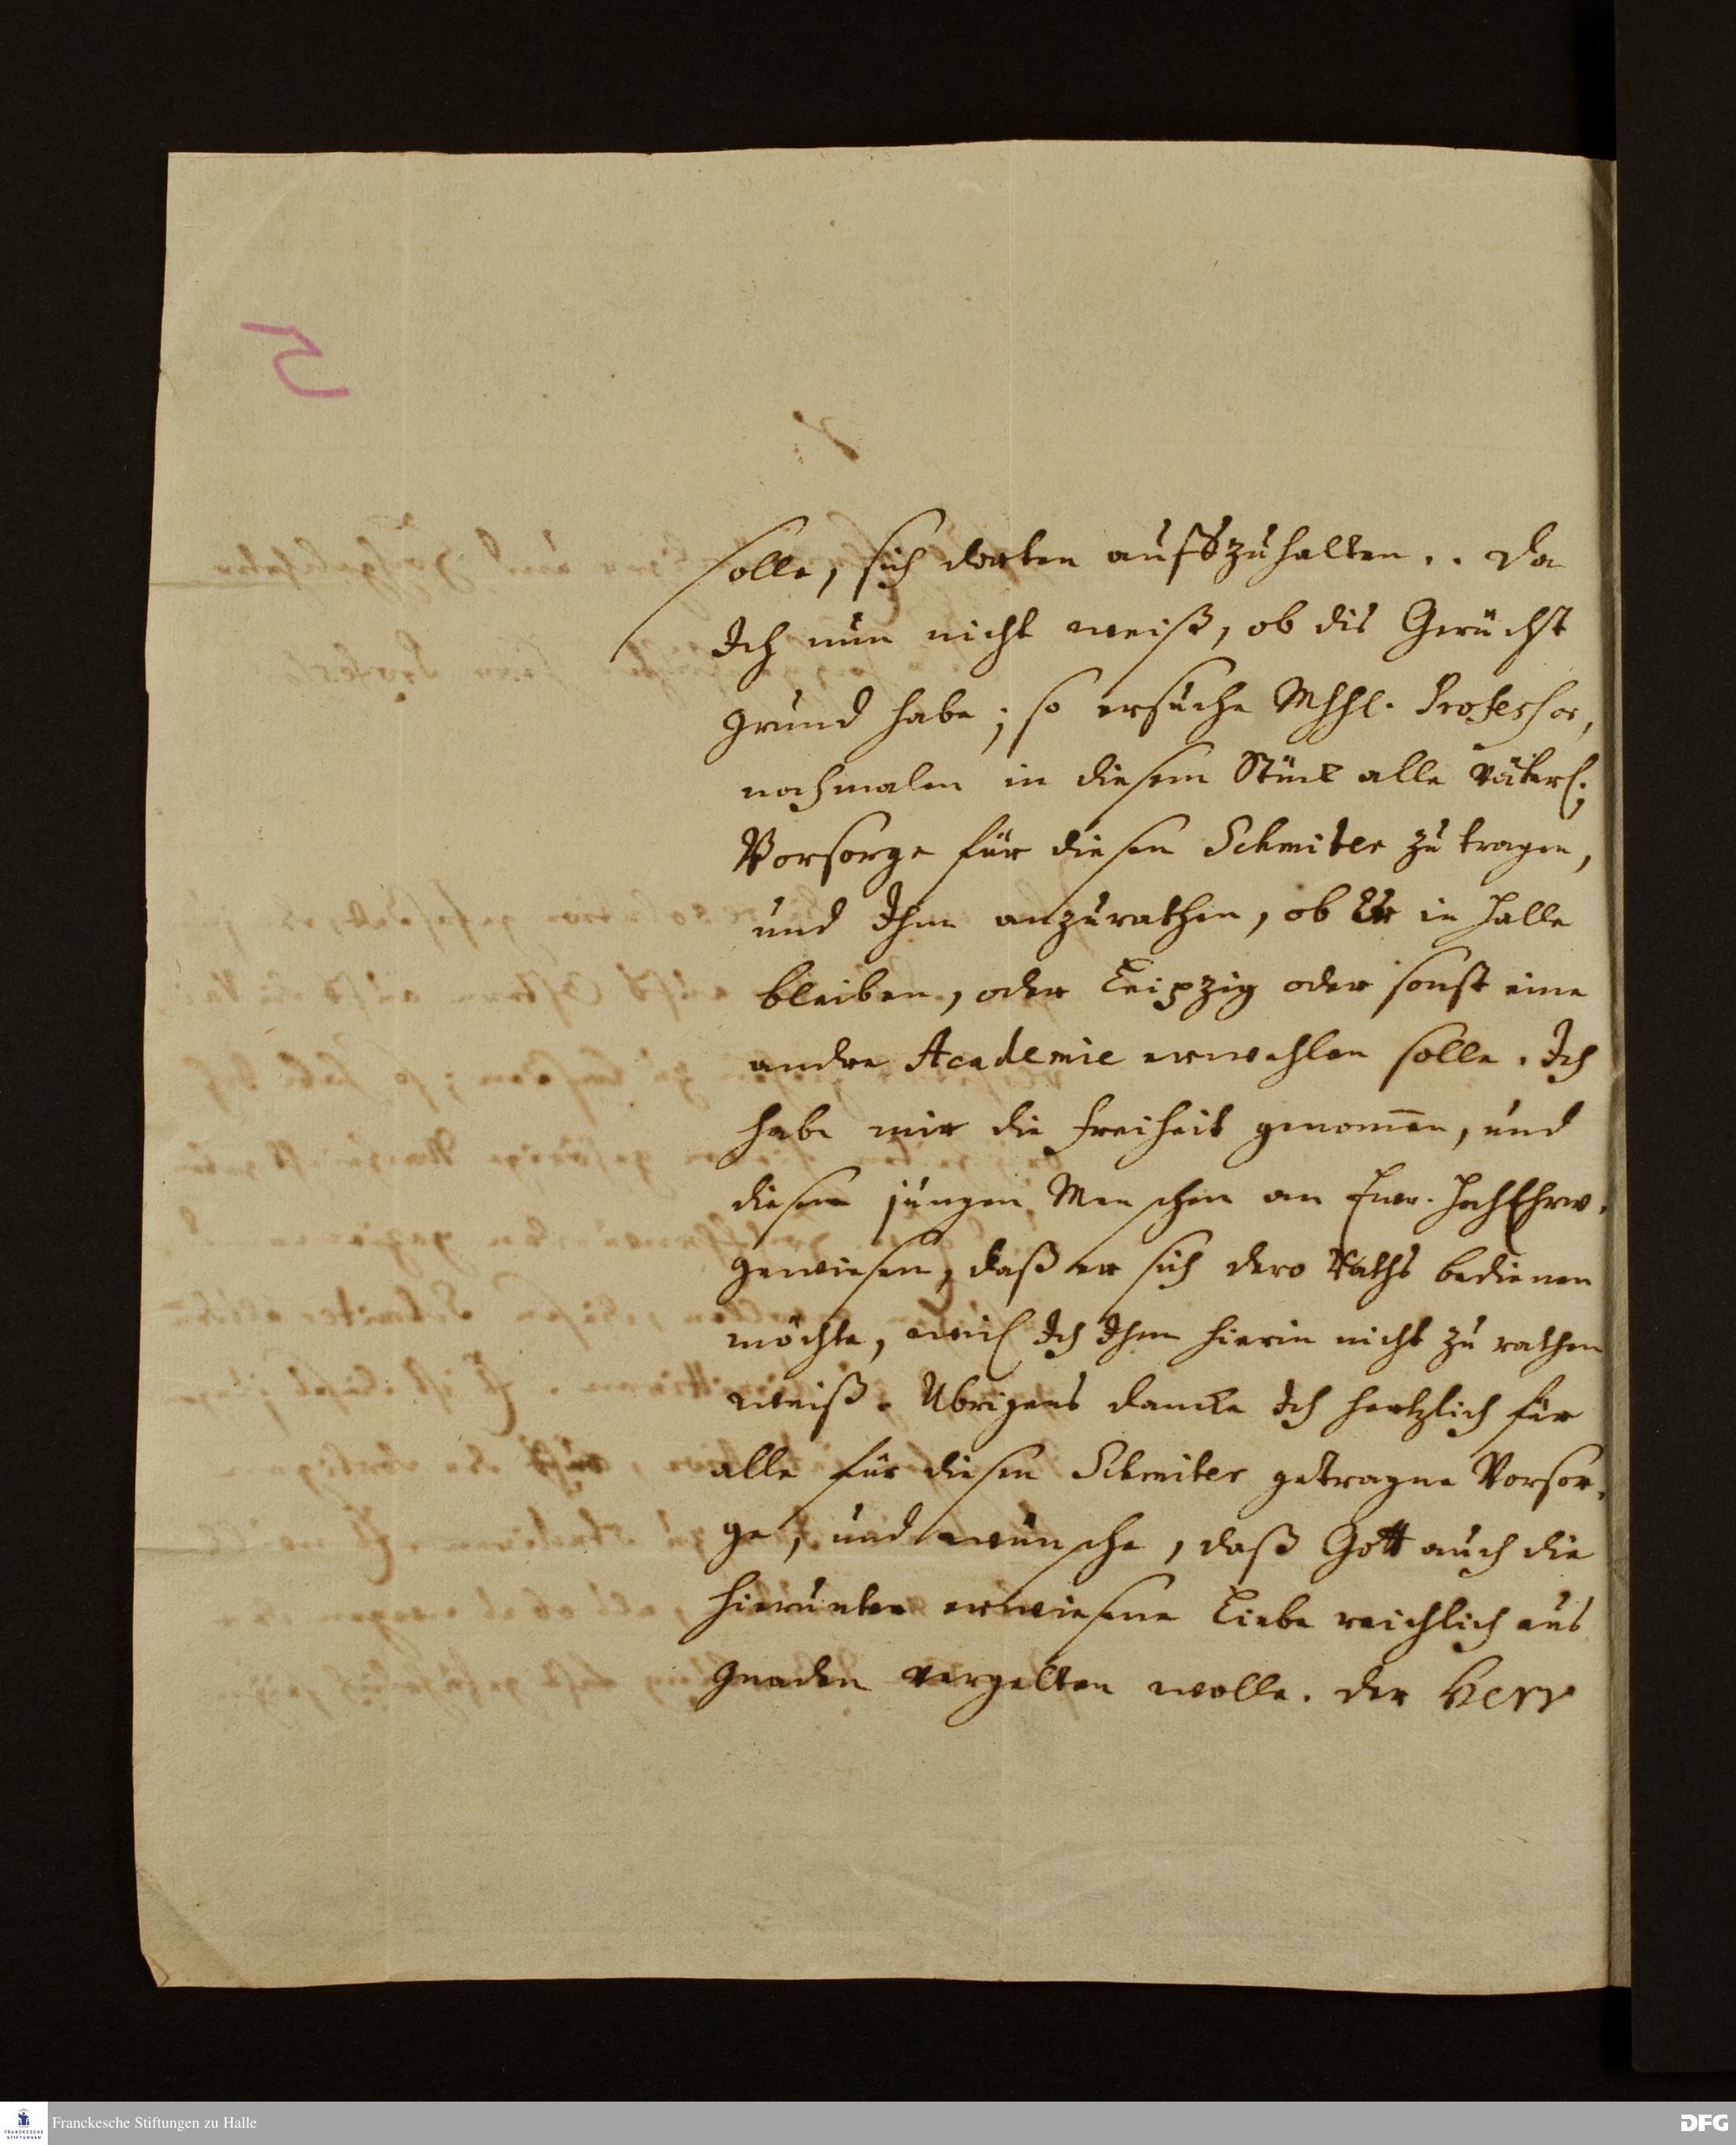 5
solle, sich dorten aufßzuhalten.. da
Ich nun nicht weiß, ob dis Gerücht
grund habe; so ersuche MhhE. Professor,
nochmalen in diesem Stück alle väterl:
Vorsorge für diesen Schmiter zu tragen,
und Ihm anzurathen, ob Er in Halle
bleiben, oder Leipzig oder sonst eine
andre Academie erwehlen solle. Ich
habe mir die freiheit genom̄en, und
diesen jungen Menschen an Ewr. HochEhrw.
gewiesen, daß er sich dero Raths bedienen
möchte, weil Ich Ihm hierin nicht zu rathen
weiß. Ubrigens dancke Ich hertzlich für
alle für diesen Schmiter getragne Vorsor-
ge, und wünsche, daß Gott auch die
hierunter erwiesene Liebe reichlich aus
gnaden vergelten wolle. der Herr
Franckesche Stiftungen zu Halle
FRANCKESCHE STIFTUNGEN
DFG